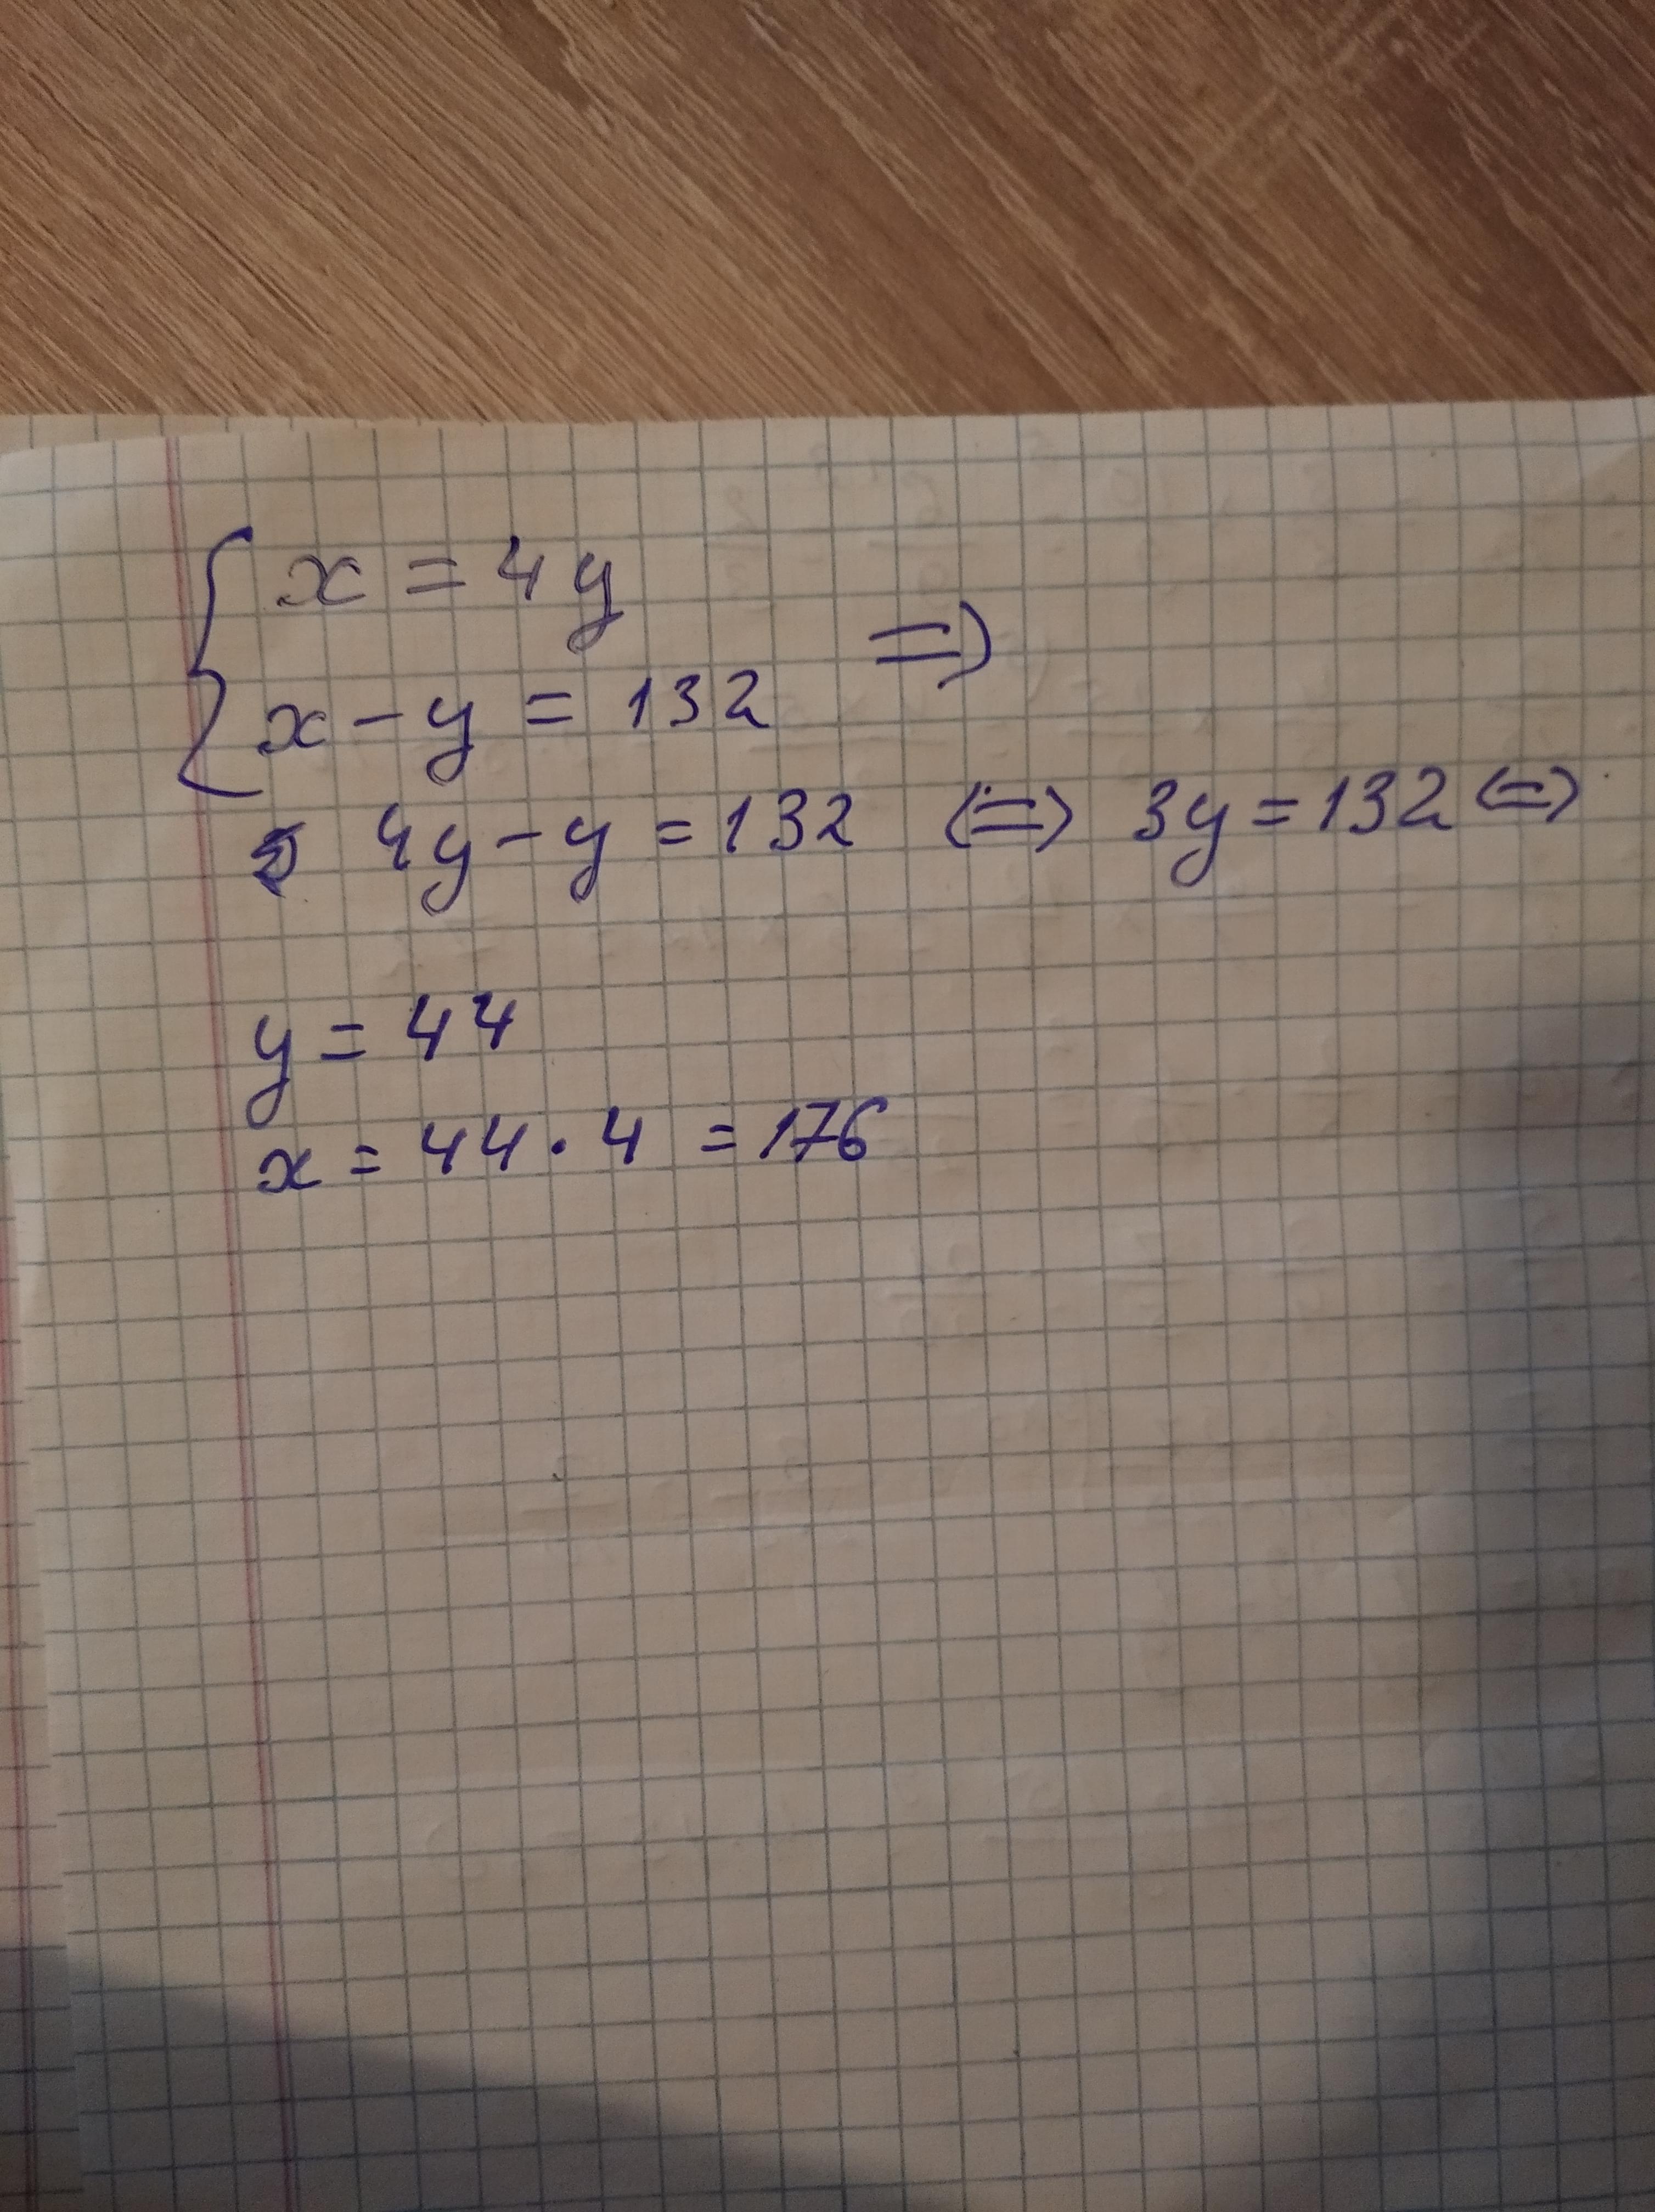 x = 4y
x - y = 132 =>
4y - y = 132 <=> 3y = 132 <=>
y = 44
x = 44 · 4 = 176